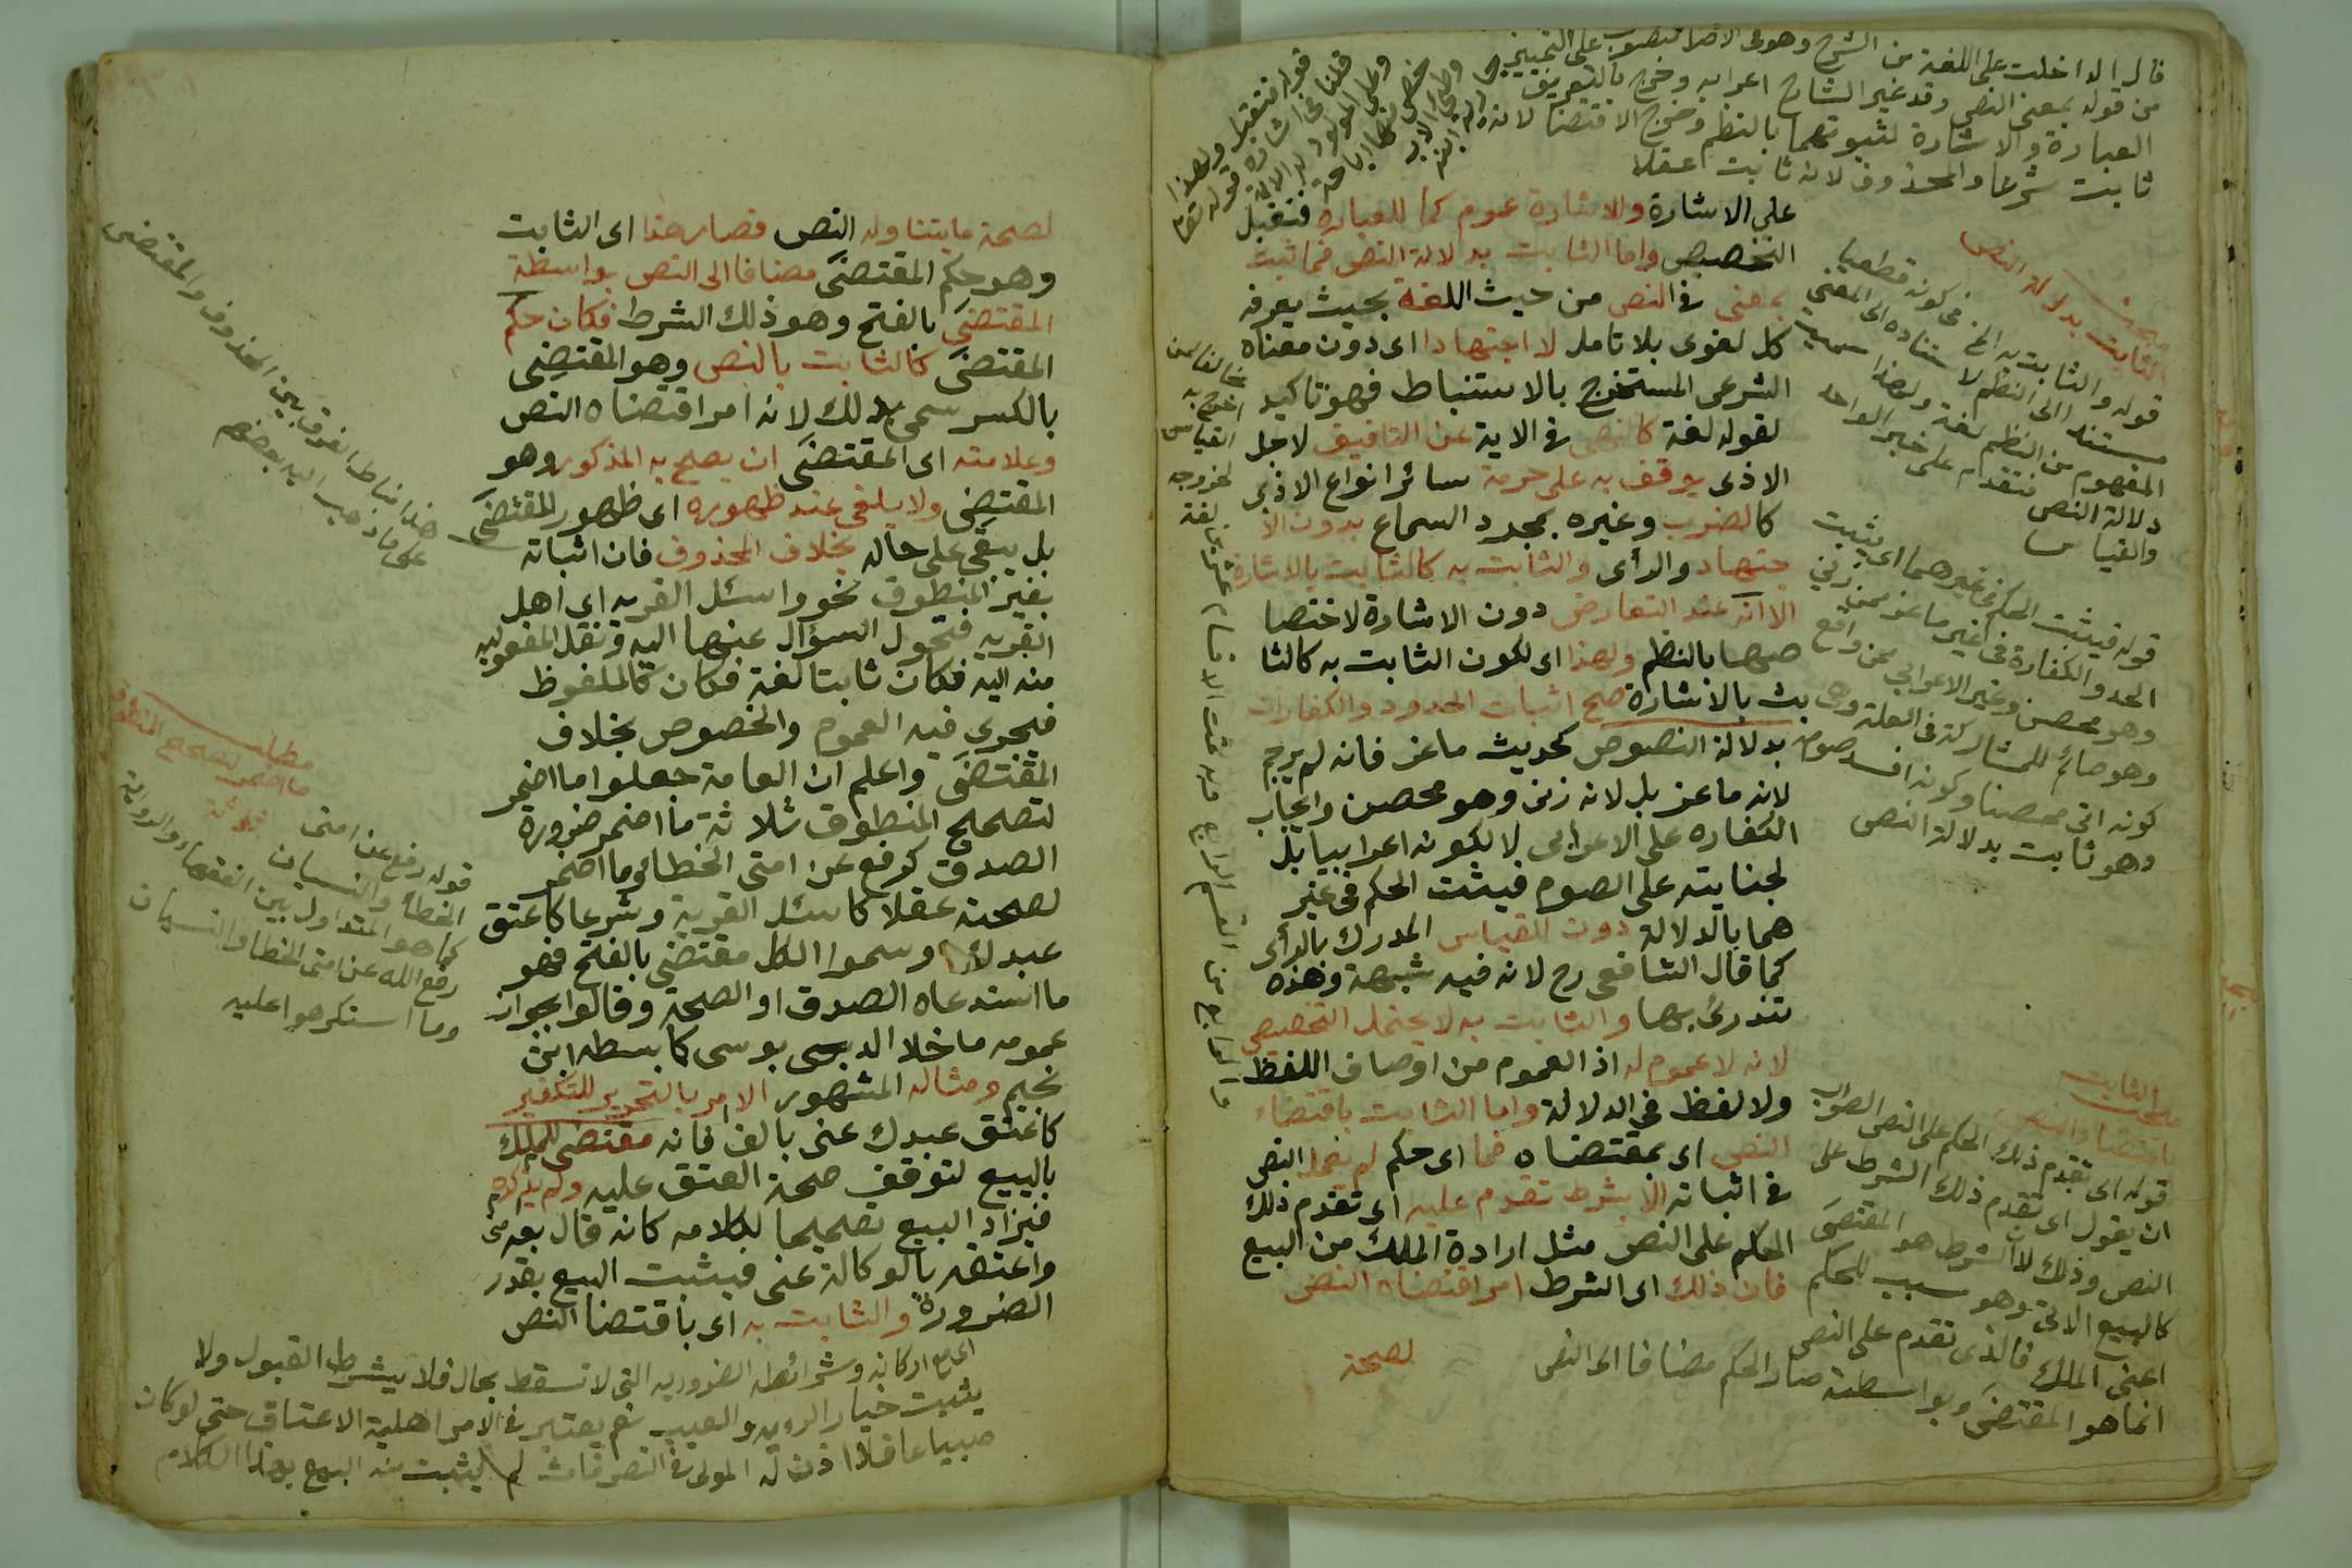 قال الداخلت على اللغة من الشرح وهو فى الاصل منصوب على التمييز
من قوله بمعنى النص وقد غير الشارح اعرابه وخرج بالتعريف
العبارة والاشارة لثبوتهما بالنظم وخرج الاقتضا لانه
ثابت شرعا والمحذوف لانه ثابت عقلا
على الاشارة والاشارة عموم كما للعبارة فتقبل
التخصيص واما الثابت بدلالة النص فما ثبت
بمعنى فى النص من حيث اللغة بحيث يعرفه
كل لغوى بلا تامل لا اجتهادا اى دون معناه
الشرعى المستخرج بالاستنباط فهو تاكيد
لقوله لغة كالنهى فى الاية عن التافيف لاجل
الاذى يوقف به على حرمة سائر انواع الاذى
كالضرب وغيره بمجرد السماع بدون الا
جتهاد والرأى والثابت به كالثابت بالاشارة
الا انه عند التعارض دون الاشارة لاختصا
صها بالنظم ولهذا اى لكون الثابت به كالثا
بت بالاشارة صح اثبات الحدود والكفارات
بدلالة النصوص كحديث ماعز فانه لم يرجم
لانه ماعز بل لانه زنى وهو محصن وايجاب
الكفاره على الاعرابى لا لكونه اعرابيا بل
لجنايته على الصوم فيثبت الحكم فى غير
هما بالدلالة دون القياس المدرك بالرأى
كما قال الشافعى رح لانه فيه شبهة وهذه
تندرئ بها والثابت به لا يحتمل التخصيص
لانه لا عموم له اذ العموم من اوصاف اللفظ
ولا لفظ فى الدلالة واما الثابت باقتضاء
النص اى بمقتضاه فما اى حكم لم يعمل النص
فى اثباته الا بشرط تقدم عليه اى تقدم ذلك
الحكم على النص مثل ارادة الملك من البيع
فان ذلك اى الشرط امر اقتضاه النص
لصحة
مبحث
الثابت بدلالة النص
قوله والثابت به الخ فى كونه قطعيا
مستندا الى النظم لاستناده الى المعنى
المفهوم من النظم لغة ولهذا سميت
دلالة النص فتقدم على خبر الواحد
والقياس
قوله فيثبت الحكم فى غيرهما اى يثبت
الحد والكفارة فى غير ماعز ممن زنى
وهو محصن وغير الاعرابى ممن واقع
وهو صائم للمشاركة فى العلة وهى
كونه اتى محصنا وكونه افسد صومه
وهو ثابت بدلالة النص
مبحث الثابت
اقتضاء النص
قوله اى تقدم ذلك الحكم على النص الصواب
ان يقول اى تقدم ذلك الشرط على
النص وذلك لان الشرط هو المقتضى
كالبيع الاتى وهو سبب للحكم
اعنى الملك فالذى تقدم على النص
انما هو المقتضى وبواسطته صار الحكم مضافا الى النص
لصحة ما يتناوله النص فصار هذا اى الثابت
وهو حكم المقتضى مضافا الى النص بواسطة
المقتضى بالفتح وهو ذلك الشرط فكان حكم
المقتضى كالثابت بالنص وهو المقتضى
بالكسر سمى بذلك لانه امر اقتضاه النص
وعلامته اى المقتضى ان يصح به المذكور وهو
المقتضى ولا يلغى عند ظهوره اى ظهور المقتضى
بل يبقى على حاله بخلاف المحذوف فان اثباته
بغير المنطوق نحو واسئل القريه اى اهل
القريه فتحول السؤال عنها اليه ونقل المفعوليه
منه اليه فكان ثابتا لغة فكان كالملفوظ
فيجرى فيه العموم والخصوص بخلاف
المقتضى واعلم ان العامة جعلوا ما اضمر
لتصحيح المنطوق ثلاثة ما اضمر ضرورة
الصدق كرفع عن امتى الخطائ وما اضمر
لصحته عقلا كاسئل القرية وشرعا كاعتق
عبدك وسموا الكل مقتضى بالفتح فهو
ما استدعاه الصدق او الصحة وقالوا بجواز
عمومه ما خلا الدبوسى كا بسطه ابن
نجيم ومثاله المشهور الامر بالتحرير للتكفير
كاعتق عبدك عنى بالف فانه مقتضى للملك
بالبيع لتوقف صحة العتق عليه ولم يذكره
فيزاد البيع تصحيحا لكلامه كانه قال بعه منى
واعتقه بالوكالة عنى فيثبت البيع بقدر
الضرورة والثابت به اى باقتضا النص
هذا مناط الفرق بين المحذوف والمقتضى
على ما ذهب اليه بعضهم
مطلب
ما اضمر لتصحيح المنطوق
ثلاثة
قوله رفع عن امتى
الخطأ والنسيان
كما هو المتداول بين الفقهاء والرواية
رفع الله عن امتى الخطا والنسيان
وما استكرهوا عليه
اى مع اركانه وشرائطه الضروريه التى لا تسقط بحال فلا يشرط القبول ولا
يثبت خيار الرويه والعيب نعم يعتبر فى الامر اهلية الاعتاق حتى لو كان
صبيا عاقلا اذن له المولى فى التصرفات لم يثبت منه البيع بهذا الكلام